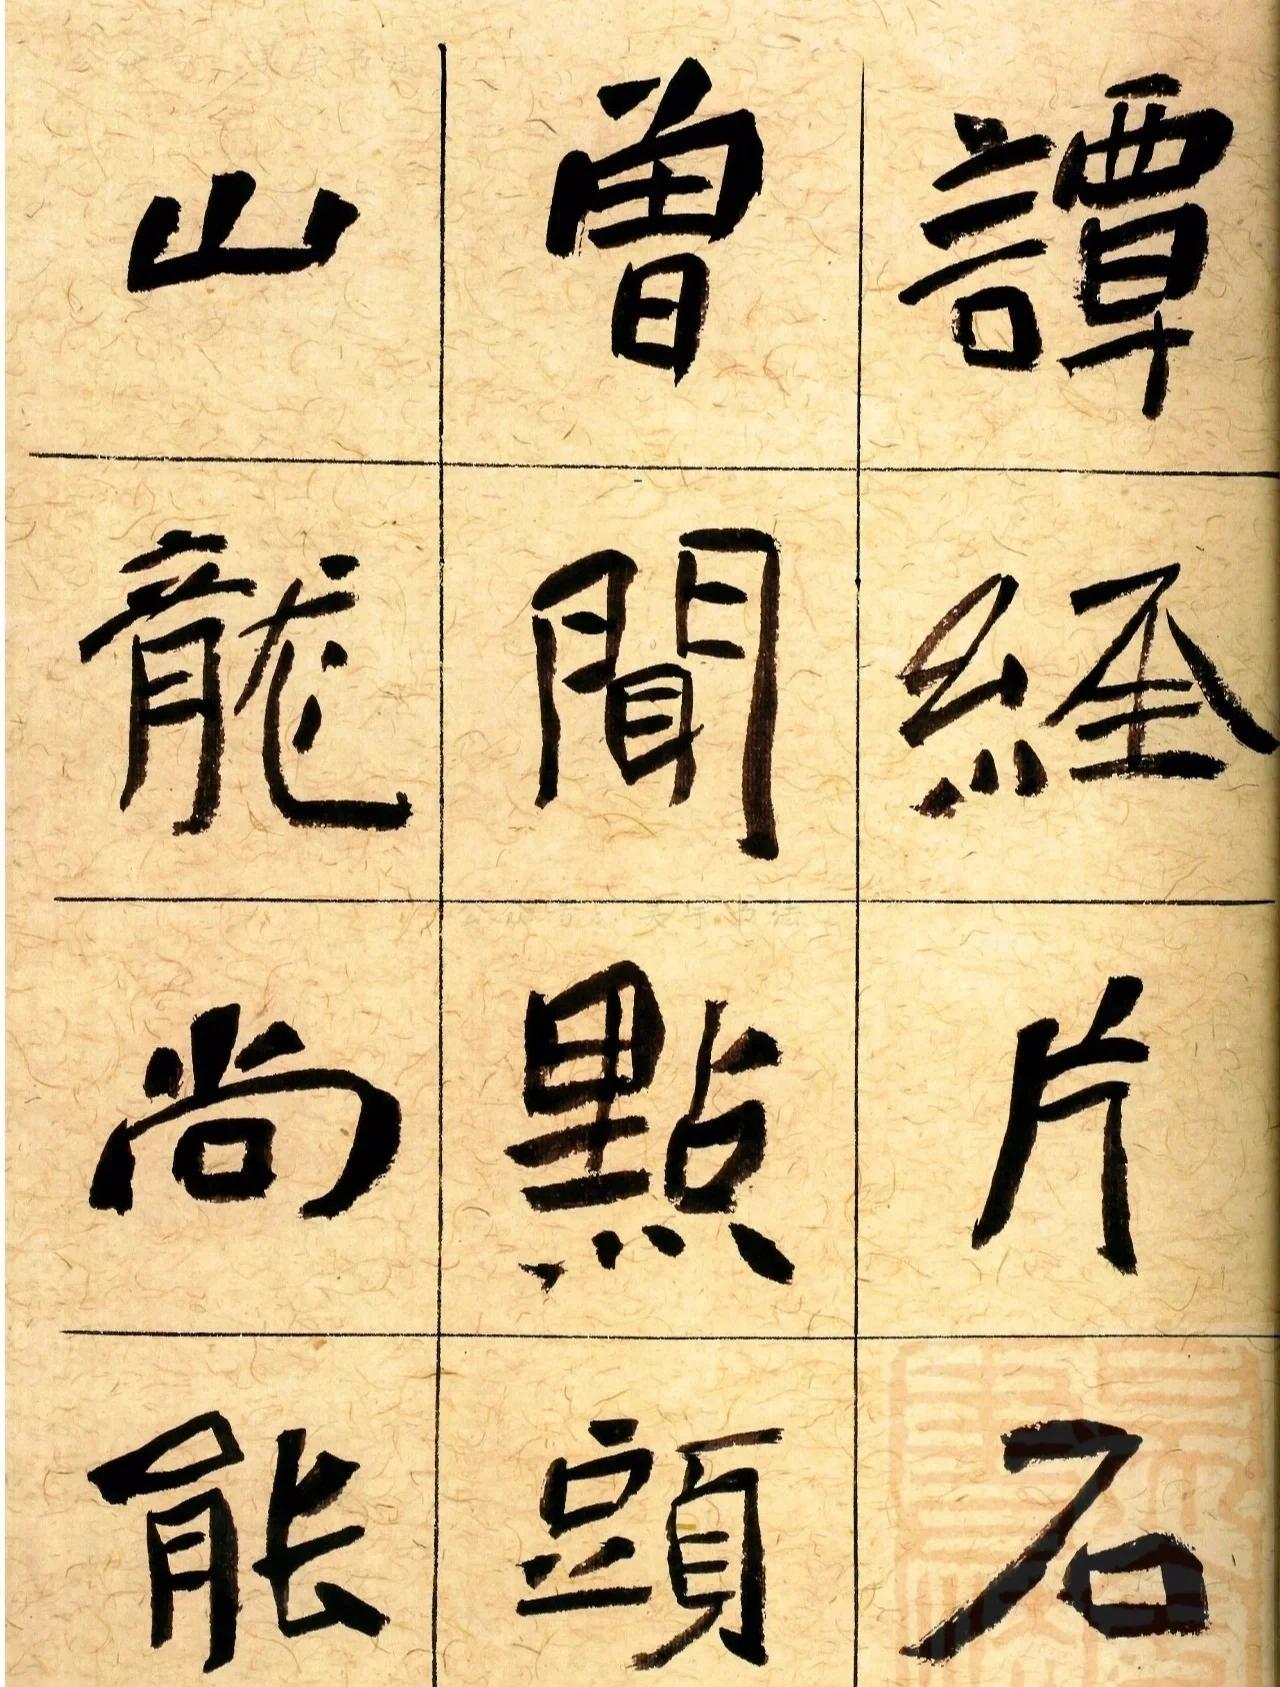 譚經片石
曾聞點頭
山龍尚能